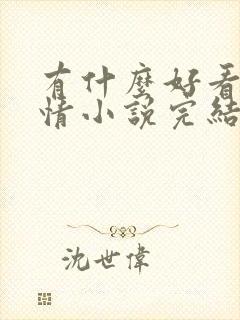 有什麼好看
情小說完結
沈世偉